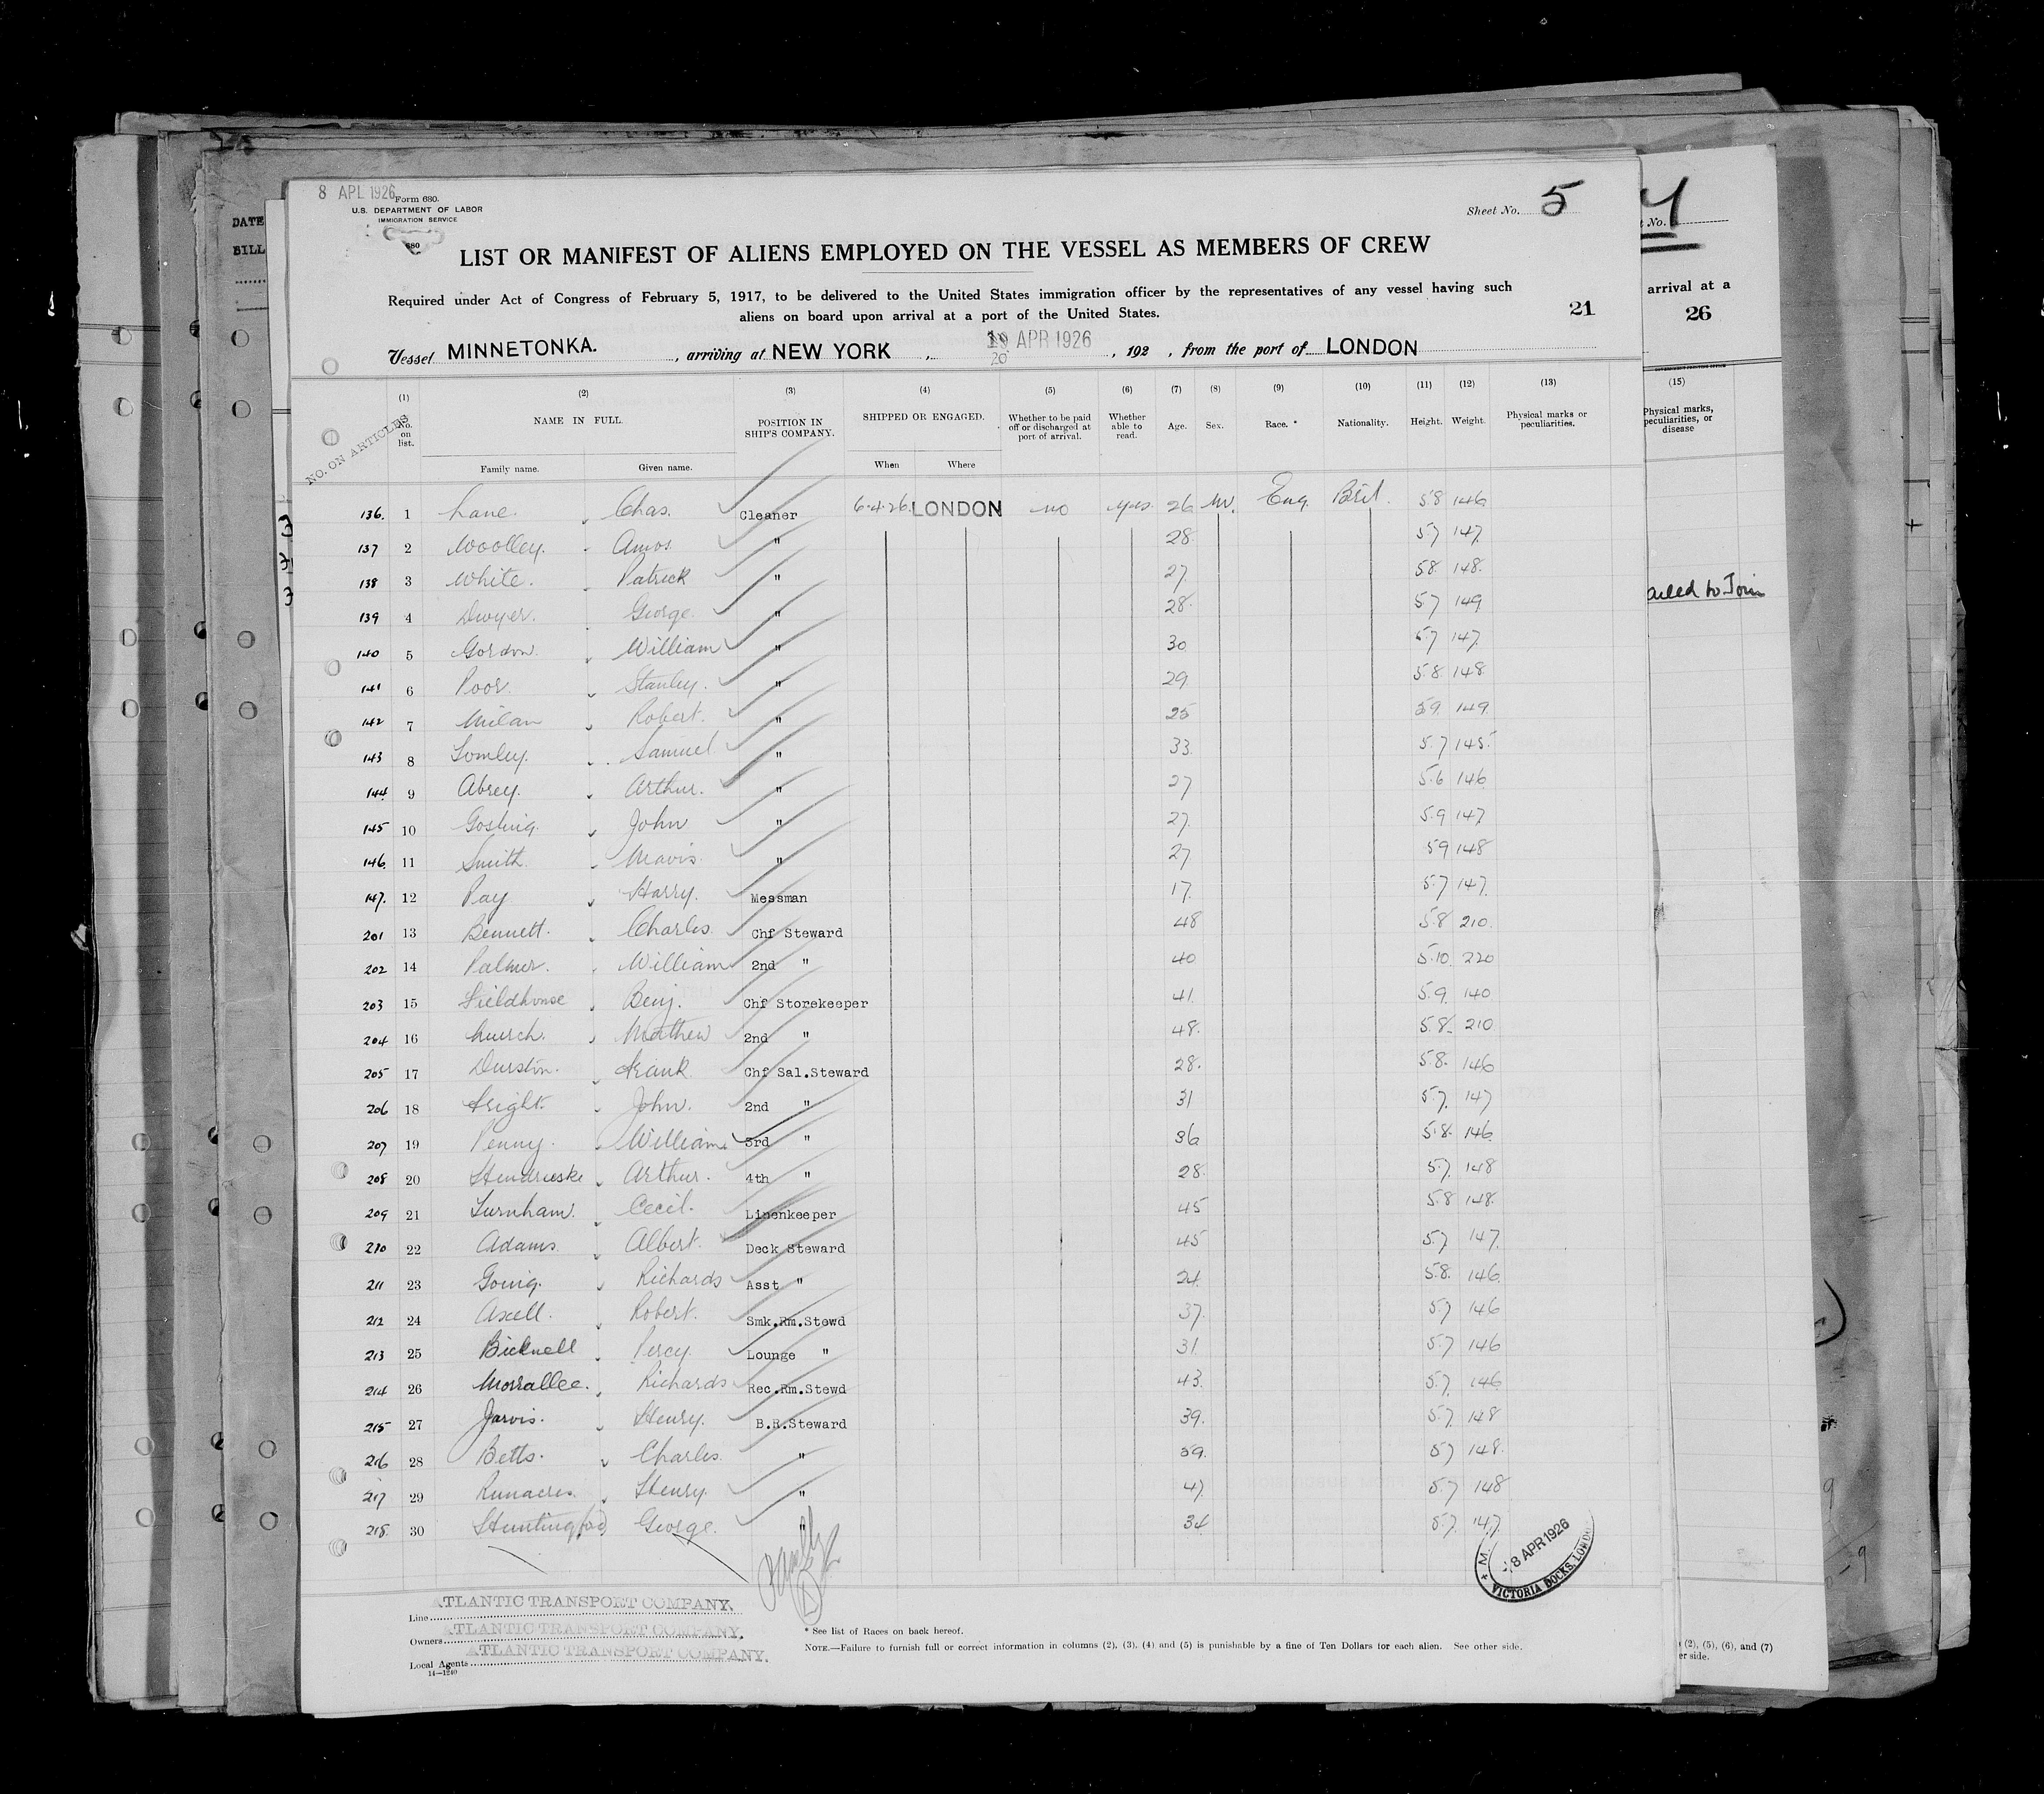 8 APL 1926
Form 680.
U.S. DEPARTMENT OF LABOR
IMMIGRATION SERVICE
680
Sheet No. 5
LIST OR MANIFEST OF ALIENS EMPLOYED ON THE VESSEL AS MEMBERS OF CREW
Required under Act of Congress of February 5, 1917, to be delivered to the United States immigration officer by the representatives of any vessel having such
aliens on board upon arrival at a port of the United States.
21
Vessel MINNETONKA. , arriving at NEW YORK , 19 APR 1926 , 192 , from the port of LONDON
20
NO. ON ARTICLES
(1) (2) (3) (4) (5) (6) (7) (8) (9) (10) (11) (12) (13)
No. on list. NAME IN FULL. POSITION IN SHIP'S COMPANY. SHIPPED OR ENGAGED. Whether to be paid off or discharged at port of arrival. Whether able to read. Age. Sex. Race. * Nationality. Height. Weight. Physical marks or peculiarities.
Family name. Given name. When Where
136. 1 Lane. Chas. Cleaner 6.4.26. LONDON no yes. 26 M. Eng. Brit. 5.8 146
137 2 Woolley. Amos. " 28. 5.7 147
138 3 White. Patrick " 27. 5.8 148.
139 4 Dwyer. George. " 28. 5.7 149
140 5 Gordon. William " 30 5.7 147.
141 6 Poor. Stanley. " 29. 5.8 148.
142 7 Milan Robert. " 25 5.9. 149.
143 8 Samuel " 33. 5.7 145.
144 9 Abrey. Arthur. " 27 5.6 146
145 10 Gosling. John " 27. 5.9 147
146. 11 Smith. " 27 5.9 148
147. 12 Pay Harry. Messman 17. 5.7 147.
201 13 Bennett. Charles. Chf Steward 48 5.8 210.
202 14 Palmer. William 2nd " 40 5.10. 220
203 15 Fieldhouse Benj. Chf Storekeeper 41. 5.9. 140
204 16 Mathew 2nd " 48. 5.8. 210
205 17 Durston. Frank Chf Sal.Steward 28. 5.8. 146
206 18 John. 2nd " 31 5.7. 147
207 19 Penny. William 3rd " 36 5.8. 146
208 20 Arthur. 4th " 28. 5.7. 148
209 21 Turnham. Cecil. Linenkeeper 45 5.8 148.
210 22 Adams Albert. Deck Steward 45 5.7. 147.
211 23 Going. Richards Asst " 24. 5.8. 146.
212 24 Axell. Robert. Smk.Rm.Stewd 37. 5.7 146
213 25 Bicknell Percy. Lounge " 31. 5.7 146
214 26 Morrallee. Richards Rec.Rm.Stewd 43. 5.7. 146
215 27 Jarvis. Henry. B.R.Steward 39. 5.7. 148
216 28 Betts. Charles. " 59. 5.7 148.
217 29 Runacres Henry. " 47. 5.7 148
218. 30 Huntingford George. " 34 5.7. 147.
8 APR 1926
VICTORIA DOCKS, LONDON
Line ATLANTIC TRANSPORT COMPANY.
Owners ATLANTIC TRANSPORT COMPANY.
Local Agents ATLANTIC TRANSPORT COMPANY.
14—1240
* See list of Races on back hereof.
NOTE.—Failure to furnish full or correct information in columns (2), (3), (4) and (5) is punishable by a fine of Ten Dollars for each alien. See other side.
DATE
BILL
No. 4
arrival at a
26
(15)
Physical marks,
peculiarities, or
disease
to Join
(2), (5), (6), and (7)
er side.